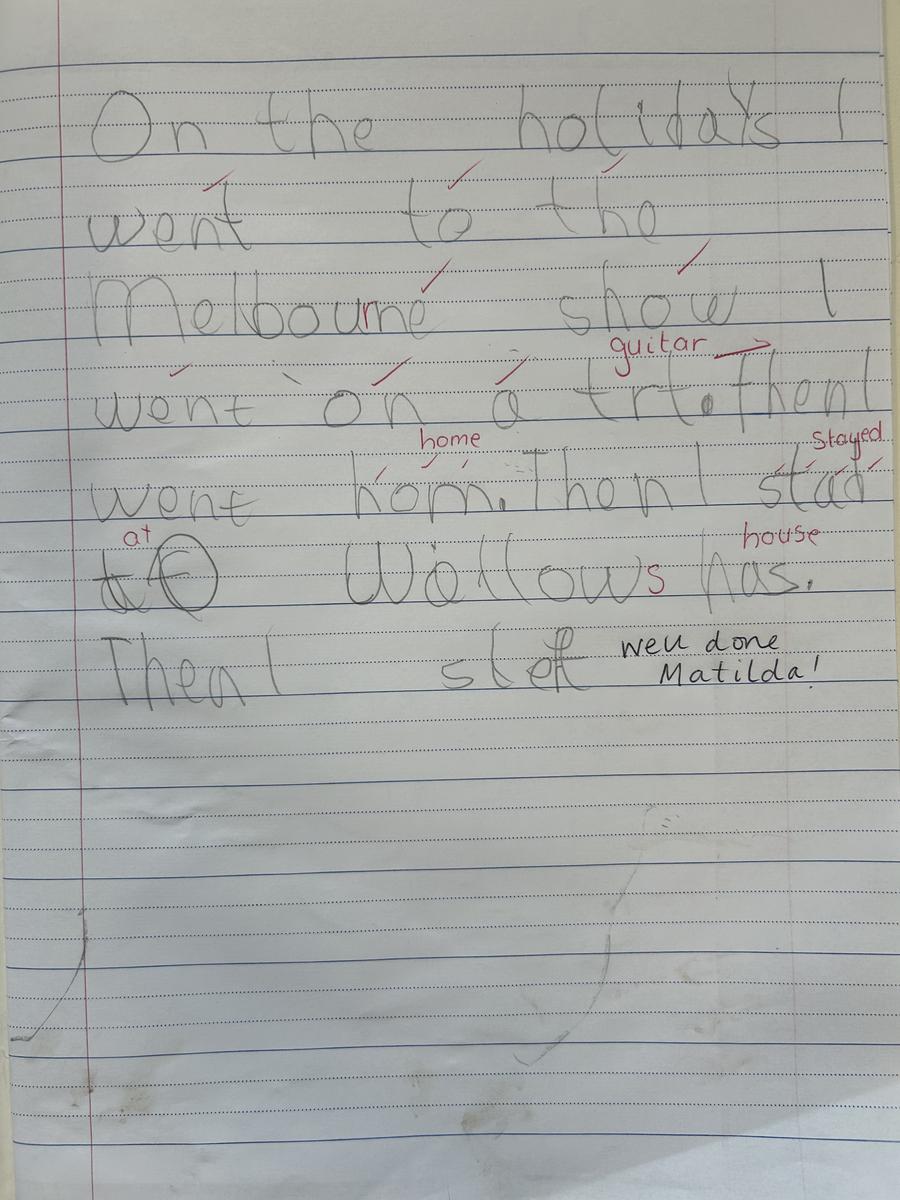 On the holidays I
went to the
Melbourne show I
guitar
went on a trt. Then I
home stayed
went hom. Then I stad
at house
Wallows has.
Then I slet well done
Matilda!